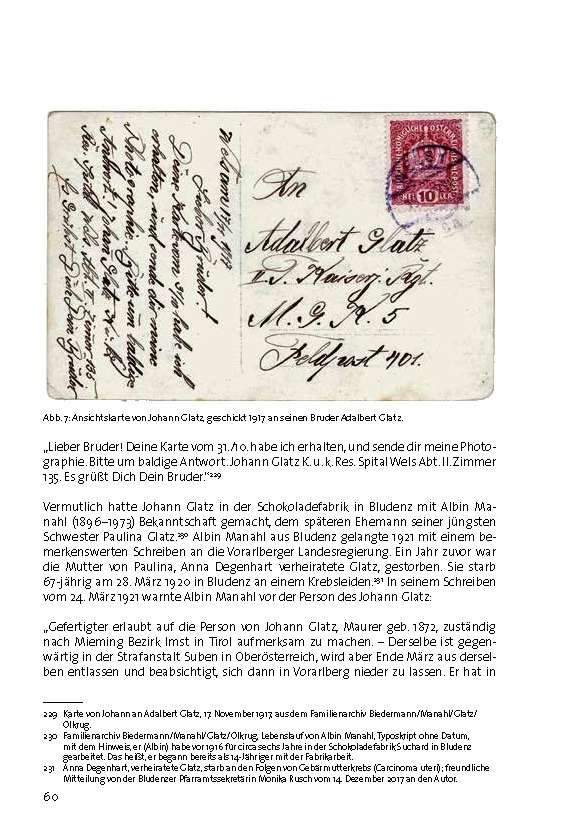 An
Adalbert Glatz
II. T. Kaiserj. Rgt.
M. G. K. 5
Feldpost 401.
10
Lieber Bruder!
Deine Karte vom 31/10 habe ich
erhalten, und sende dir meine
Photographie. Bitte um baldige
Antwort. Johann Glatz K. u. k.
Res. Spital Wels Abt. II. Zimmer 135
Es Grüßt Dich Dein Bruder
Abb. 7: Ansichtskarte von Johann Glatz, geschickt 1917 an seinen Bruder Adalbert Glatz.
„Lieber Bruder! Deine Karte vom 31./10. habe ich erhalten, und sende dir meine Photo-
graphie. Bitte um baldige Antwort. Johann Glatz K. u. k. Res. Spital Wels Abt. II. Zimmer
135. Es grüßt Dich Dein Bruder.“229
Vermutlich hatte Johann Glatz in der Schokoladefabrik in Bludenz mit Albin Ma-
nahl (1896–1973) Bekanntschaft gemacht, dem späteren Ehemann seiner jüngsten
Schwester Paulina Glatz.230 Albin Manahl aus Bludenz gelangte 1921 mit einem be-
merkenswerten Schreiben an die Vorarlberger Landesregierung. Ein Jahr zuvor war
die Mutter von Paulina, Anna Degenhart verheiratete Glatz, gestorben. Sie starb
67-jährig am 28. März 1920 in Bludenz an einem Krebsleiden.231 In seinem Schreiben
vom 24. März 1921 warnte Albin Manahl vor der Person des Johann Glatz:
„Gefertigter erlaubt auf die Person von Johann Glatz, Maurer geb. 1872, zuständig
nach Mieming Bezirk Imst in Tirol aufmerksam zu machen. – Derselbe ist gegen-
wärtig in der Strafanstalt Suben in Oberösterreich, wird aber Ende März aus dersel-
ben entlassen und beabsichtigt, sich dann in Vorarlberg nieder zu lassen. Er hat in
229 Karte von Johann an Adalbert Glatz, 17. November 1917, aus dem Familienarchiv Biedermann/Manahl/Glatz/
Olkrug.
230 Familienarchiv Biedermann/Manahl/Glatz/Olkrug, Lebenslauf von Albin Manahl, Typoskript ohne Datum,
mit dem Hinweis, er (Albin) habe vor 1916 für circa sechs Jahre in der Schokoladefabrik Suchard in Bludenz
gearbeitet. Das heißt, er begann bereits als 14-Jähriger mit der Fabrikarbeit.
231 Anna Degenhart, verheiratete Glatz, starb an den Folgen von Gebärmutterkrebs (Carcinoma uteri); freundliche
Mitteilung von der Bludenzer Pfarramtssekretärin Monika Rusch vom 14. Dezember 2017 an den Autor.
60